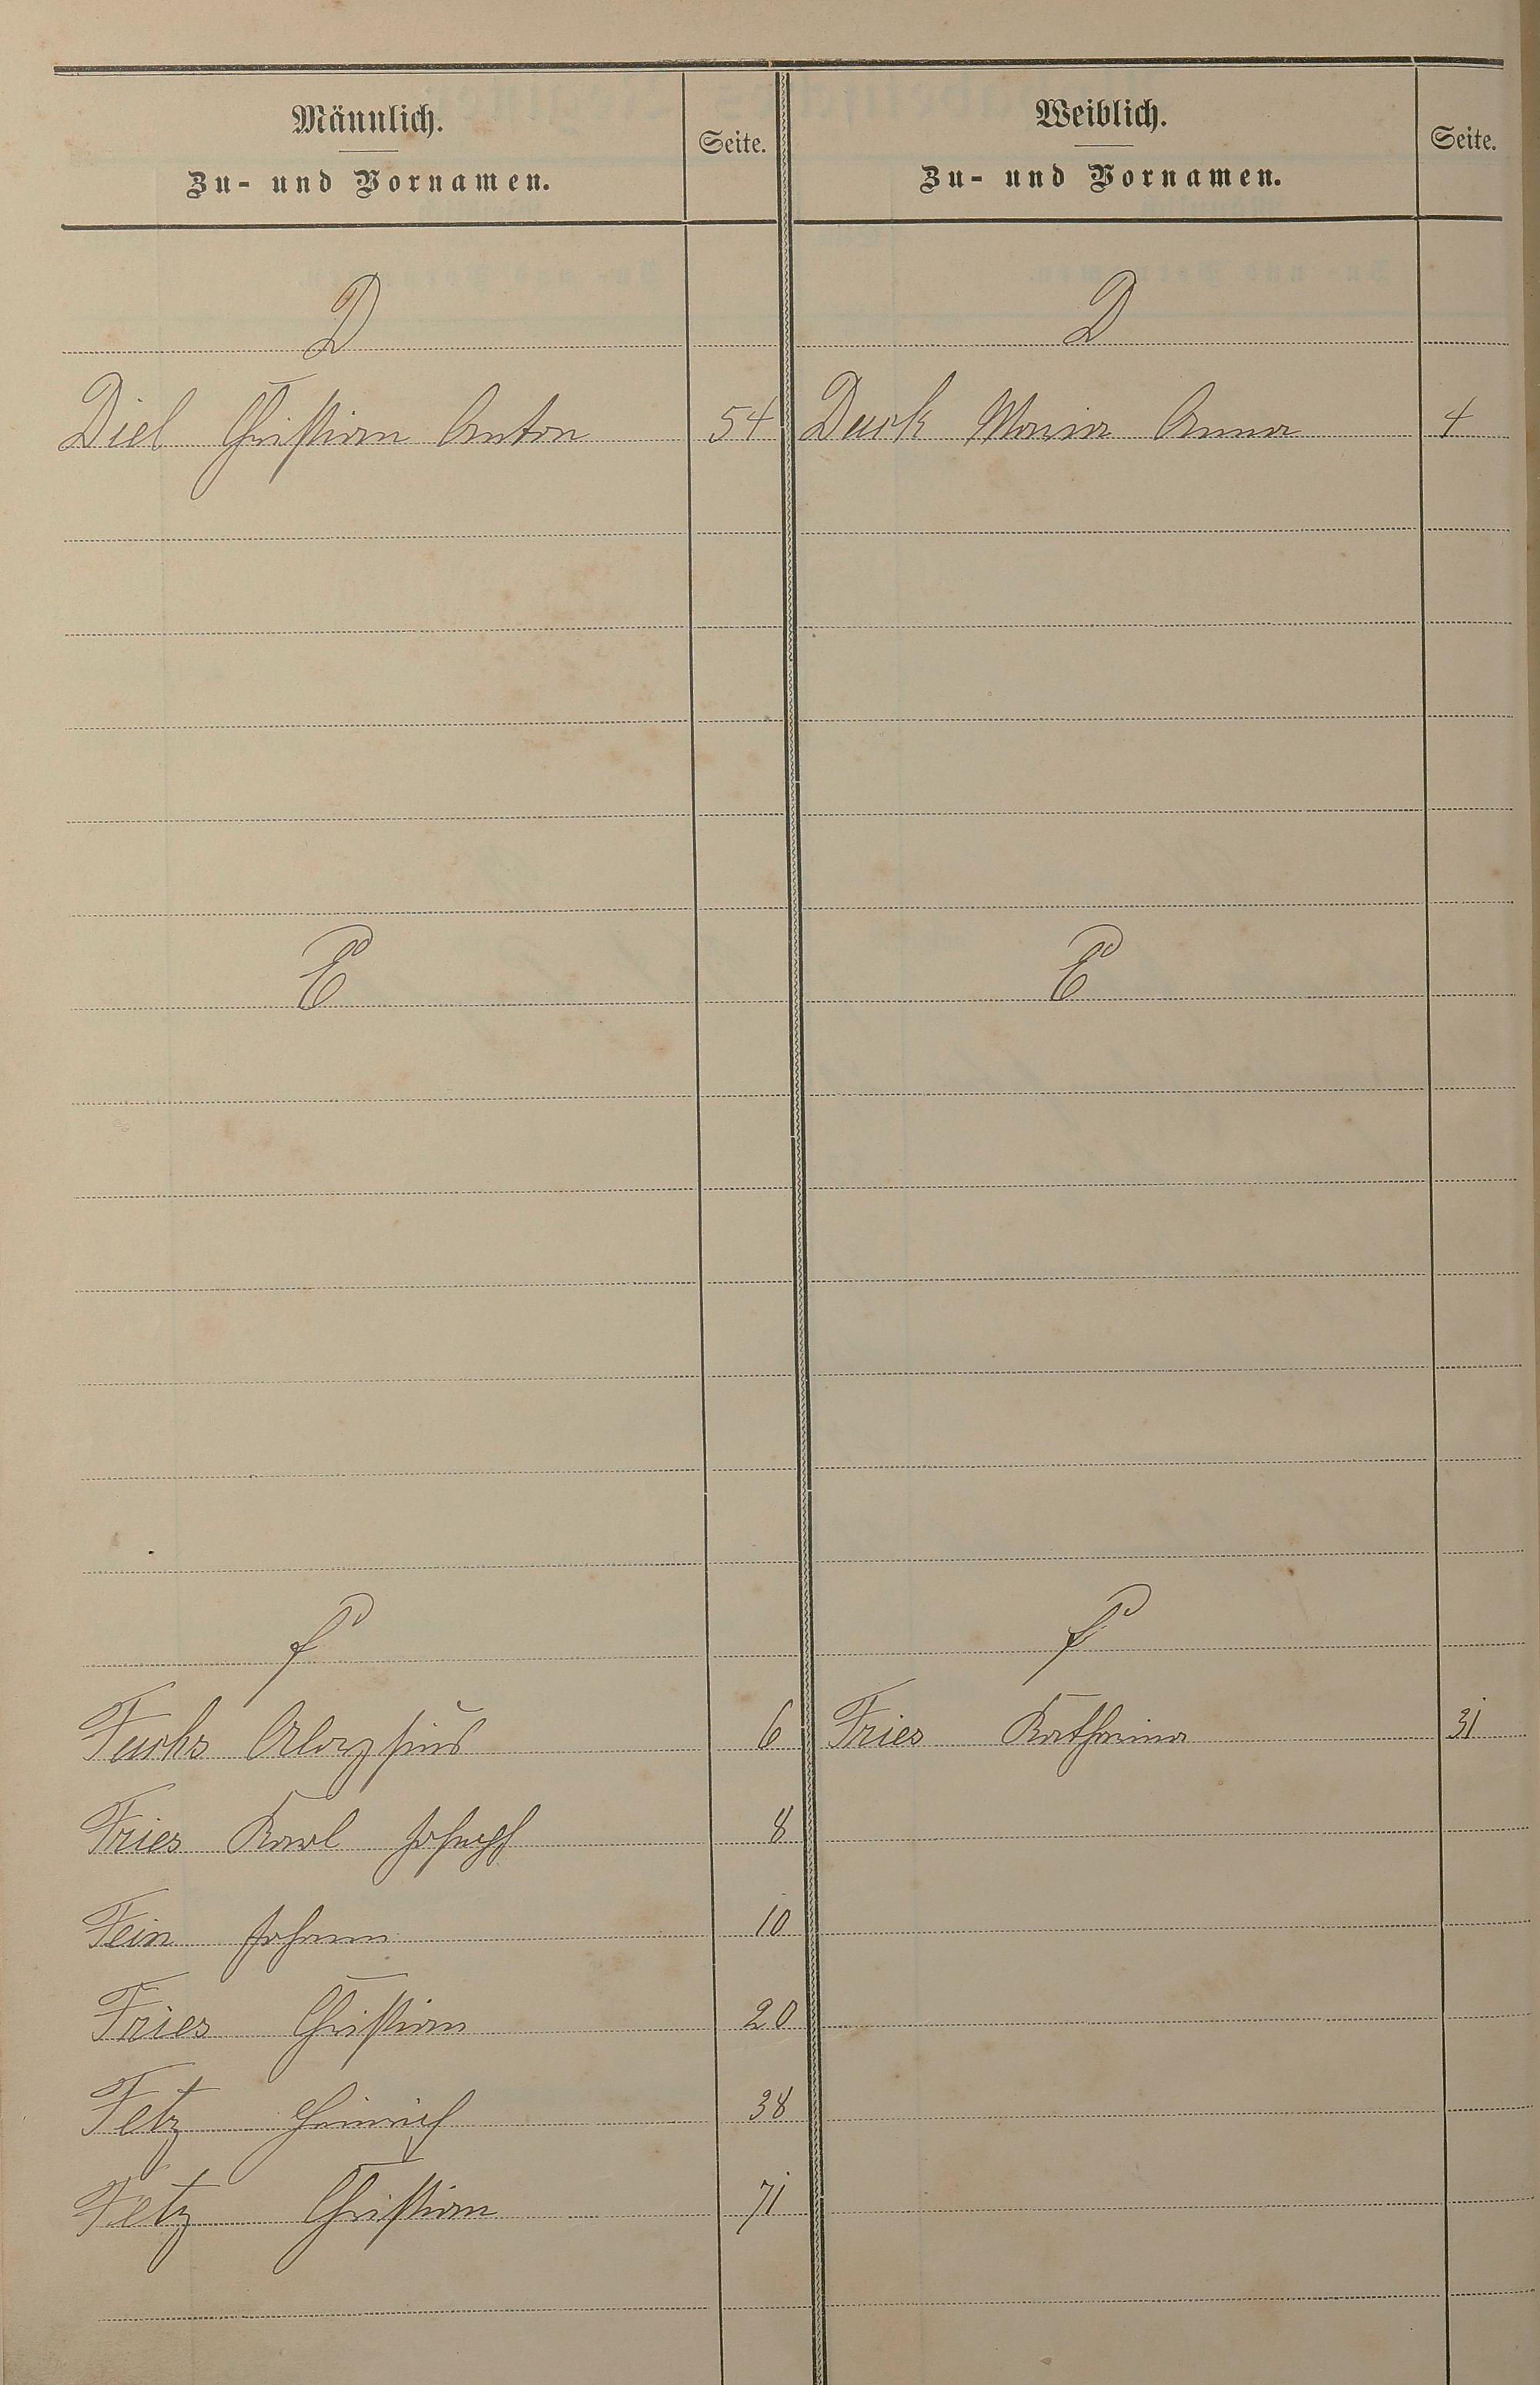 Männlich.
Zu- und Vornamen.
Seite.
Weiblich.
Zu- und Vornamen.
Seite.
D
D
Diel Christian Anton 54
Maria Anna 4
E
E
F
F
Fuchs Aloysius 6
Fries Katharina 31
Fries Karl Joseph 8
Fein Johann 10
Fries Christian 20
Fetz Heinrich 38
Fetz Christian 71